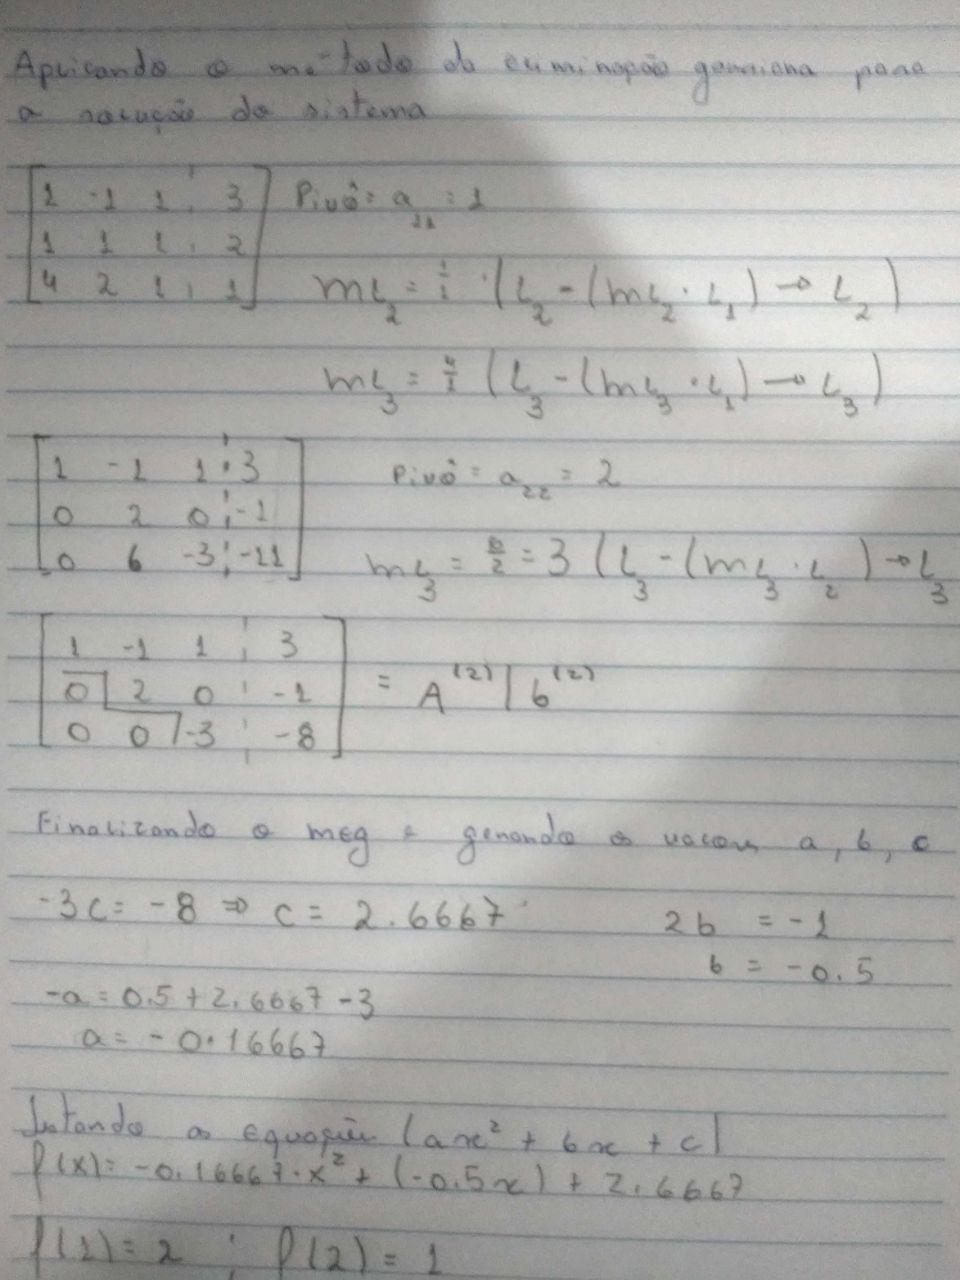 Aplicando o metodo da eliminação gaussiana para
a solução do sistema
1 -1 1 3 Pivô = a11 = 1
1 1 1 2
4 2 1 1 mL2 = 1/1 · (L2 - (mL2 · L1) → L2)
mL3 = 4/1 (L3 - (mL3 · L1) → L3)
1 -1 1 3 Pivô = a22 = 2
0 2 0 -1
0 6 -3 -11 mL3 = 6/2 = 3 (L3 - (mL3 · L2) → L3
1 -1 1 3
0 2 0 -1 = A(2) | b(2)
0 0 -3 -8
Finalizando o meg e gerando os valores a, b, c
-3c = -8 ⇒ c = 2.6667 2b = -1
b = -0.5
-a = 0.5 + 2.6667 - 3
a = -0.16667
as equações (ax² + bx + c)
P(x) = -0.16667 · x² + (-0.5x) + 2.6667
P(1) = 2 ; P(2) = 1